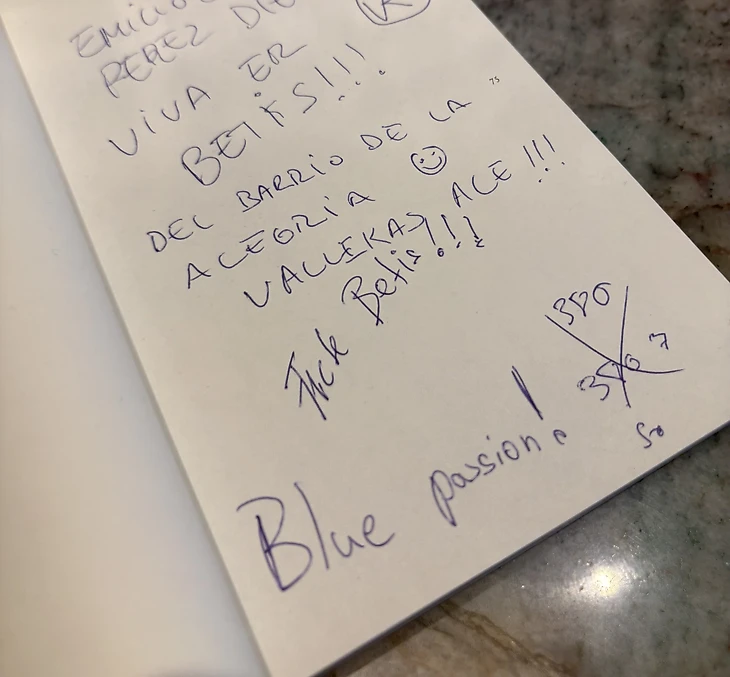 EMILIO
PEREZ DIE
VIVA ER
BETIS!!!
DEL BARRIO DE LA
ALEGRIA ☺
VALLEKAS ALE!!!
Fuck Betis!!!
380
380 7
So
Blue passion!
K
75